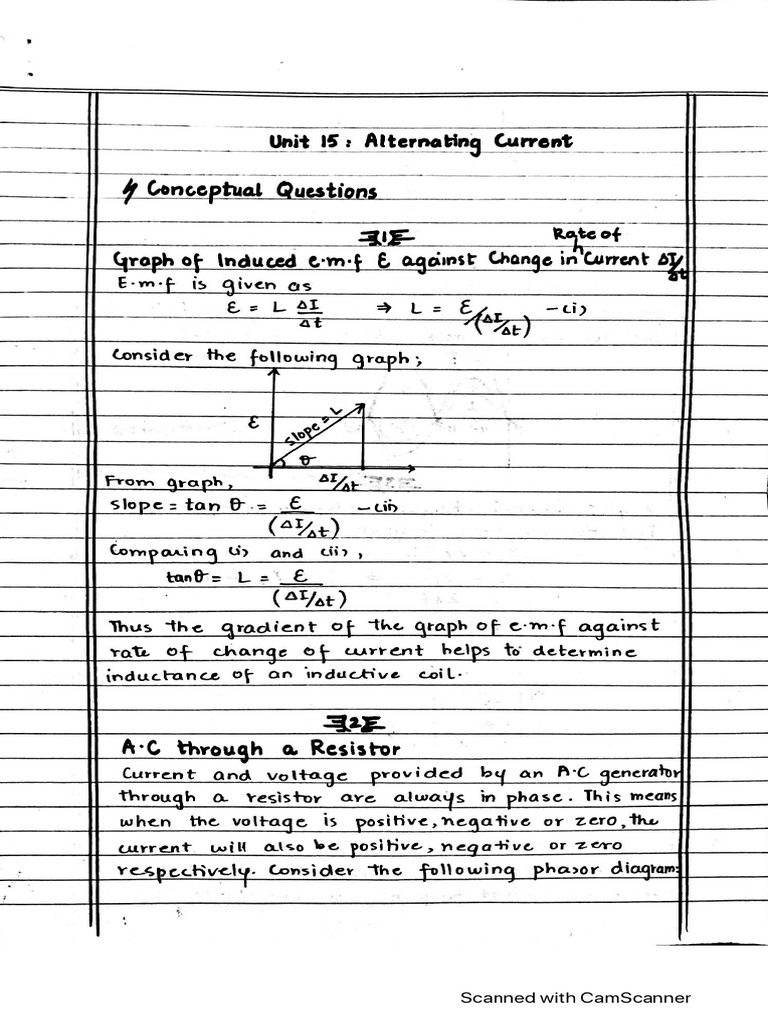 Unit 15: Alternating Current
Conceptual Questions
1
Rate of
Graph of Induced e.m.f ε against Change in Current ΔI/Δt
E.m.f is given as
ε = L ΔI/Δt ⇒ L = ε/(ΔI/Δt) -(i)
Consider the following graph;
ε
slope = L
θ
From graph, ΔI/Δt
slope = tan θ = ε/(ΔI/Δt) -(ii)
Comparing (i) and (ii),
tanθ = L = ε/(ΔI/Δt)
Thus the gradient of the graph of e.m.f against
rate of change of current helps to determine
inductance of an inductive coil.
2
A.C through a Resistor
Current and voltage provided by an A.C generator
through a resistor are always in phase. This means
when the voltage is positive, negative or zero, the
current will also be positive, negative or zero
respectively. Consider the following phasor diagram:
Scanned with CamScanner